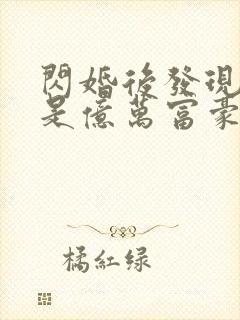 閃婚後發現
是億萬富豪
橘紅绿